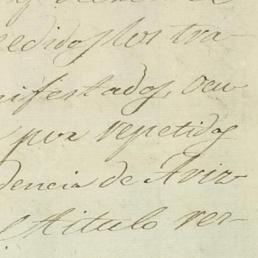 pedidos los tra-
nifestados, ocu
por repetidos
dencia de Aviso
el titulo ver-